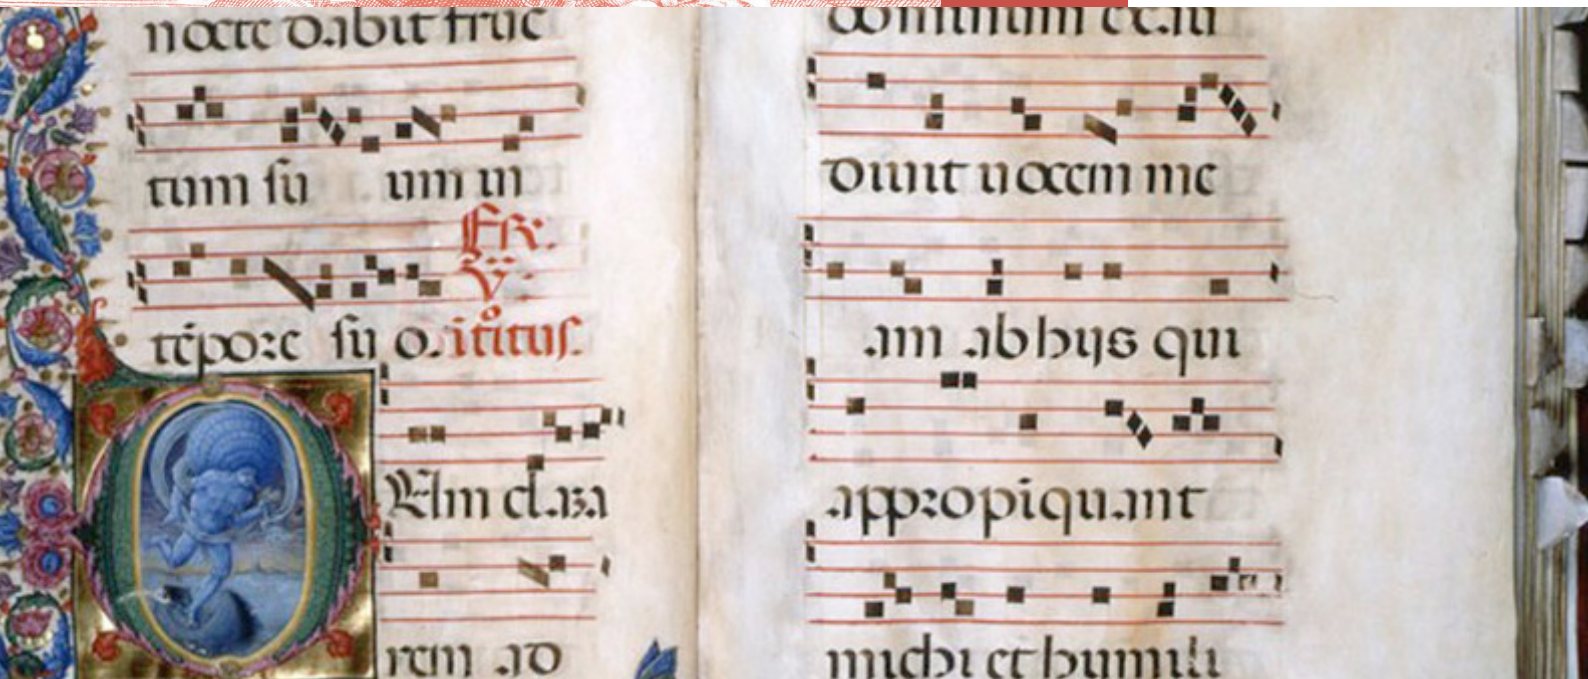 nocte dabit fruc
tum su um in
Fr.
V.
tēpore su o.
Um
rem ad
dominum exau
diuit uocem me
am ab hijs qui
appropiquant
michi et humili